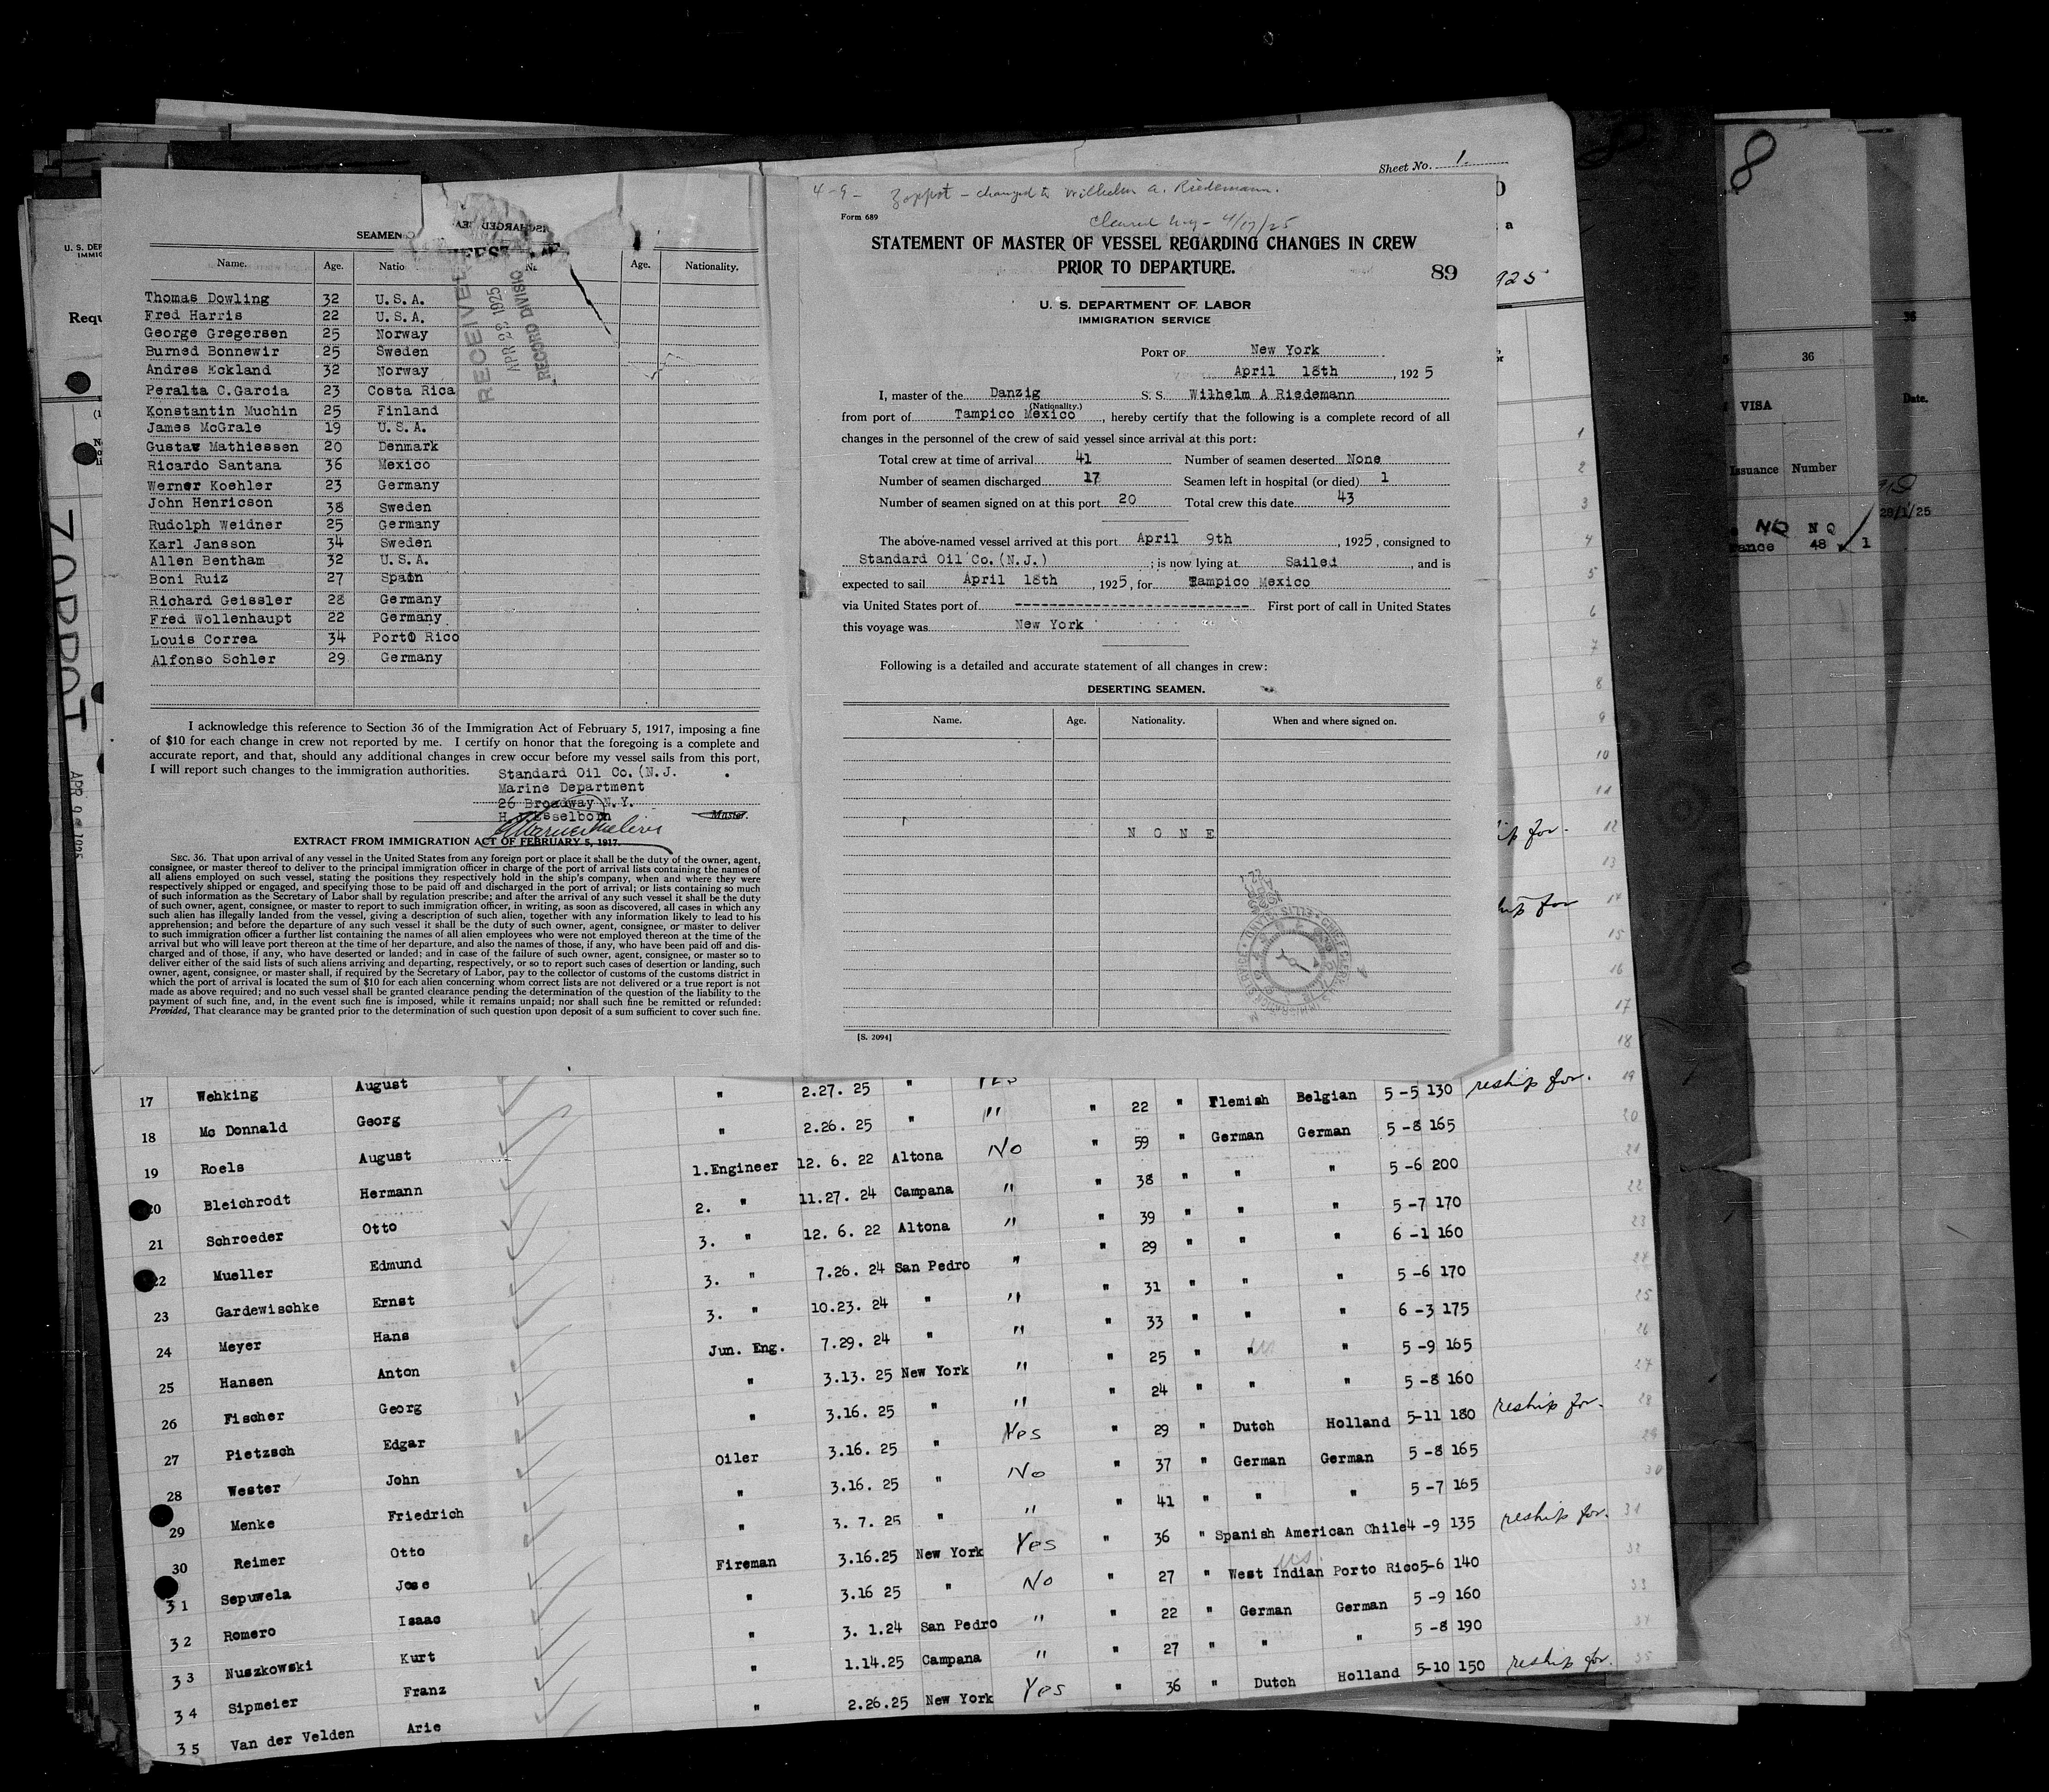 Sheet No. 1.
4-9- Zoppot - changed to Wilhelm A. Riedemann.
Form 689
Cleared
STATEMENT OF MASTER OF VESSEL REGARDING CHANGES IN CREW
PRIOR TO DEPARTURE.
89
U. S. DEPARTMENT OF LABOR
IMMIGRATION SERVICE
PORT OF New York
April 18th, 1925
I, master of the Danzig S. S. Wilhelm A Riedemann
(Nationality.)
from port of Tampico Mexico, hereby certify that the following is a complete record of all
changes in the personnel of the crew of said vessel since arrival at this port:
Total crew at time of arrival 41 Number of seamen deserted None
Number of seamen discharged 17 Seamen left in hospital (or died) 1
Number of seamen signed on at this port 20 Total crew this date 43
The above-named vessel arrived at this port April 9th, 1925, consigned to
Standard Oil Co.(N.J.); is now lying at Sailed, and is
expected to sail April 18th, 1925, for Tampico Mexico
via United States port of ---------------------------- First port of call in United States
this voyage was New York
Following is a detailed and accurate statement of all changes in crew:
DESERTING SEAMEN.
Name. Age. Nationality. When and where signed on.
N O N E
[S. 2094]
SEAMEN
Name. Age. Natio Age. Nationality.
RECEIVED
APR 22 1925
RECORD DIVISIO
Thomas Dowling 32 U.S.A.
Fred Harris 22 U.S.A.
George Gregersen 25 Norway
Burned Bonnewir 25 Sweden
Andres Eckland 32 Norway
Peralta C.Garcia 23 Costa Rica
Konstantin Muchin 25 Finland
James McGrale 19 U.S.A.
Gustav Mathiessen 20 Denmark
Ricardo Santana 36 Mexico
Werner Koehler 23 Germany
John Henricson 38 Sweden
Rudolph Weidner 25 Germany
Karl Jansson 34 Sweden
Allen Bentham 32 U.S.A.
Boni Ruiz 27 Spain
Richard Geissler 28 Germany
Fred Wollenhaupt 22 Germany
Louis Correa 34 Porto Rico
Alfonso Schler 29 Germany
I acknowledge this reference to Section 36 of the Immigration Act of February 5, 1917, imposing a fine
of $10 for each change in crew not reported by me. I certify on honor that the foregoing is a complete and
accurate report, and that, should any additional changes in crew occur before my vessel sails from this port,
I will report such changes to the immigration authorities.
Standard Oil Co. (N.J.
Marine Department
26 Broadway N.Y.
H J Esselborn
Master.
EXTRACT FROM IMMIGRATION ACT OF FEBRUARY 5, 1917.
SEC. 36. That upon arrival of any vessel in the United States from any foreign port or place it shall be the duty of the owner, agent,
consignee, or master thereof to deliver to the principal immigration officer in charge of the port of arrival lists containing the names of
all aliens employed on such vessel, stating the positions they respectively hold in the ship's company, when and where they were
respectively shipped or engaged, and specifying those to be paid off and discharged in the port of arrival; or lists containing so much
of such information as the Secretary of Labor shall by regulation prescribe; and after the arrival of any such vessel it shall be the duty
of such owner, agent, consignee, or master to report to such immigration officer, in writing, as soon as discovered, all cases in which any
such alien has illegally landed from the vessel, giving a description of such alien, together with any information likely to lead to his
apprehension; and before the departure of any such vessel it shall be the duty of such owner, agent, consignee, or master to deliver
to such immigration officer a further list containing the names of all alien employees who were not employed thereon at the time of the
arrival but who will leave port thereon at the time of her departure, and also the names of those, if any, who have been paid off and dis-
charged and of those, if any, who have deserted or landed; and in case of the failure of such owner, agent, consignee, or master so to
deliver either of the said lists of such aliens arriving and departing, respectively, or so to report such cases of desertion or landing, such
owner, agent, consignee, or master shall, if required by the Secretary of Labor, pay to the collector of customs of the customs district in
which the port of arrival is located the sum of $10 for each alien concerning whom correct lists are not delivered or a true report is not
made as above required; and no such vessel shall be granted clearance pending the determination of the question of the liability to the
payment of such fine, and, in the event such fine is imposed, while it remains unpaid; nor shall such fine be remitted or refunded:
Provided, That clearance may be granted prior to the determination of such question upon deposit of a sum sufficient to cover such fine.
ZOPPOT
17 Wehking August " 2.27. 25 " " " 22 " Flemish Belgian 5-5 130 reship for.
18 Mc Donnald Georg " 2.26. 25 " No " 59 " German German 5-8 165
19 Roels August 1.Engineer 12. 6. 22 Altona " " 38 " " " 5-6 200
20 Bleichrodt Hermann 2. " 11.27. 24 Campana " " 39 " " " 5-7 170
21 Schroeder Otto 3. " 12. 6. 22 Altona " " 29 " " " 6-1 160
22 Mueller Edmund 3. " 7.26. 24 San Pedro " " 31 " " " 5-6 170
23 Gardewischke Ernst 3. " 10.23. 24 " " " 33 " " " 6-3 175
24 Meyer Hans Jun. Eng. 7.29. 24 " " " 25 " " " 5-9 165
25 Hansen Anton " 3.13. 25 New York " " 24 " " " 5-8 160
26 Fischer Georg " 3.16. 25 " Yes " 29 " Dutch Holland 5-11 180 reship for.
27 Pietzsch Edgar Oiler 3.16. 25 " No " 37 " German German 5-8 165
28 Wester John " 3.16. 25 " " " 41 " " " 5-7 165
29 Menke Friedrich " 3. 7. 25 " Yes " 36 " Spanish American Chile 4-9 135 reship for.
30 Reimer Otto Fireman 3.16.25 New York No " 27 " West Indian Porto Rico 5-6 140
31 Sepuwela Jose " 3.16 25 " " " 22 " German German 5-9 160
32 Romero Isaac " 3. 1.24 San Pedro " " 27 " " " 5-8 190
33 Nuszkowski Kurt " 1.14.25 Campana Yes " 36 " Dutch Holland 5-10 150 reship for.
34 Sipmeier Franz " 2.26.25 New York
35 Van der Velden Arie
8
36
VISA
Issuance Number
Date.
28/1/25
48 1